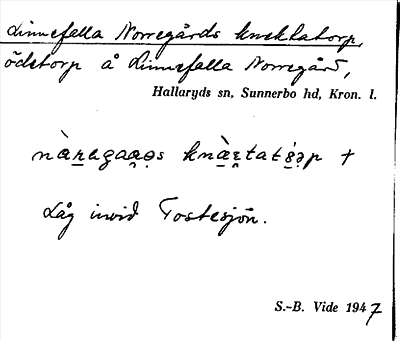 Linnefalla Norregårds knektatorp,
ödetorp å Linnefalla Norregård,
Hallaryds sn, Sunnerbo hd, Kron. l.
knæ̀ktatò̤rp †
Låg invid Tostesjön.
S.-B. Vide 1947